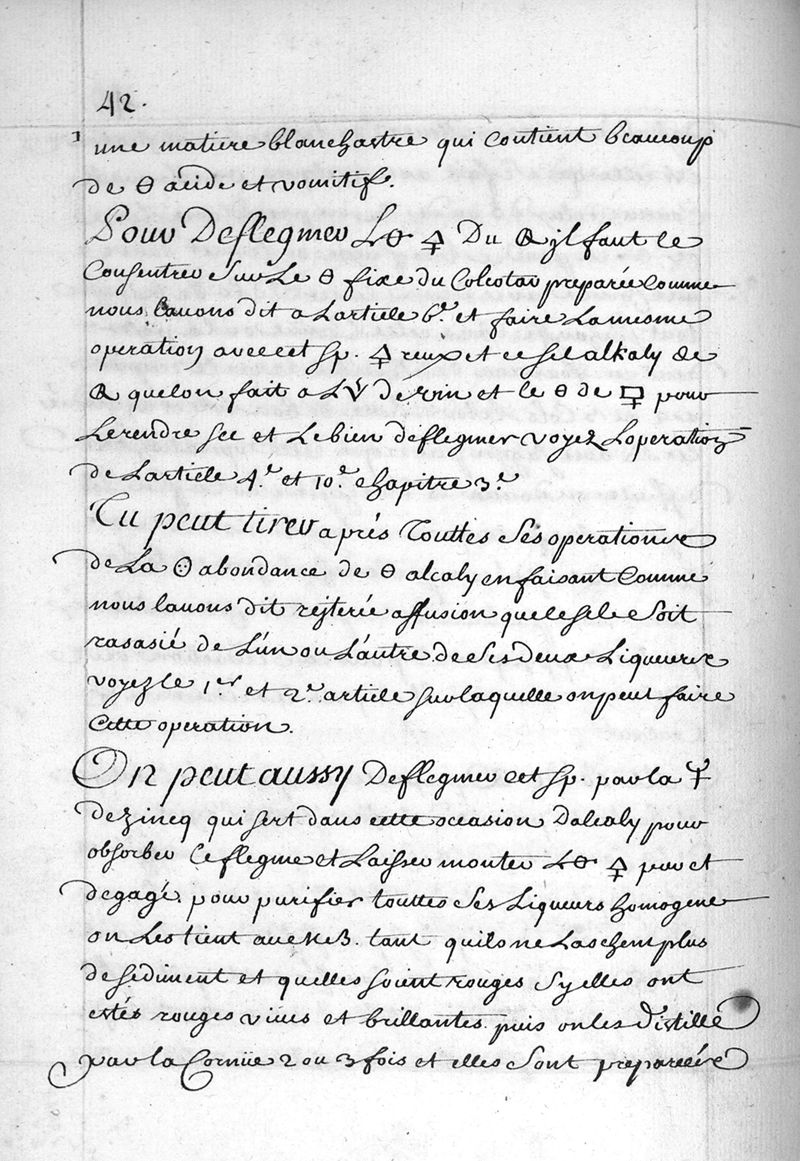 42.
une matiere blanchastre qui contient beaucoup
de 🜔 acide et vomitif.
Pour Deflegmer L🜔 🜍 Du il faut le
Consentrer Sur Le 🜔 fixe du Colcotar preparée Comme
nous Lauons dit a Larticle 6.e et faire La mesme
operation avec cet Sp. 🜍 reux et ce sel alkaly de
quelon fait a L de vin et le 🜔 de pour
Le rendre sec et Le bien deflegmer voyez Loperation
de Larticle 4.e et 10.e chapitre 3.e
Tu peut tirer aprés Touttes Ses operations
de La abondance de 🜔 alcaly en faisant Comme
nous lauons dit rejterée affusion que le sel Soit
rasasié de L'un ou L'autre de Ses deux Liqueurs
voyez le 1.er et 2.e article sur laquelle on peut faire
Cette operation.
On peut aussy Deflegmer cet Sp. par la
de zincq qui sert dans cette occasion Dalcaly pour
absorber Ce flegme et Laisser monter L🜔 🜍 pur et
degagé. pour purifier touttes Ses Liqueurs homogene
on Les tient au tant quils ne Laschent plus
de sediment et quelles soient rouges Sy elles ont
estés rouges viues et brillantes. puis on les distille
par la Cornüe 2 ou 3 fois et elles Sont preparées